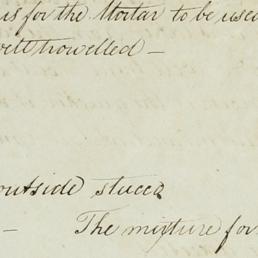 is for the Mortar to be used
well trowelled —
outside stucco
— The mixture for